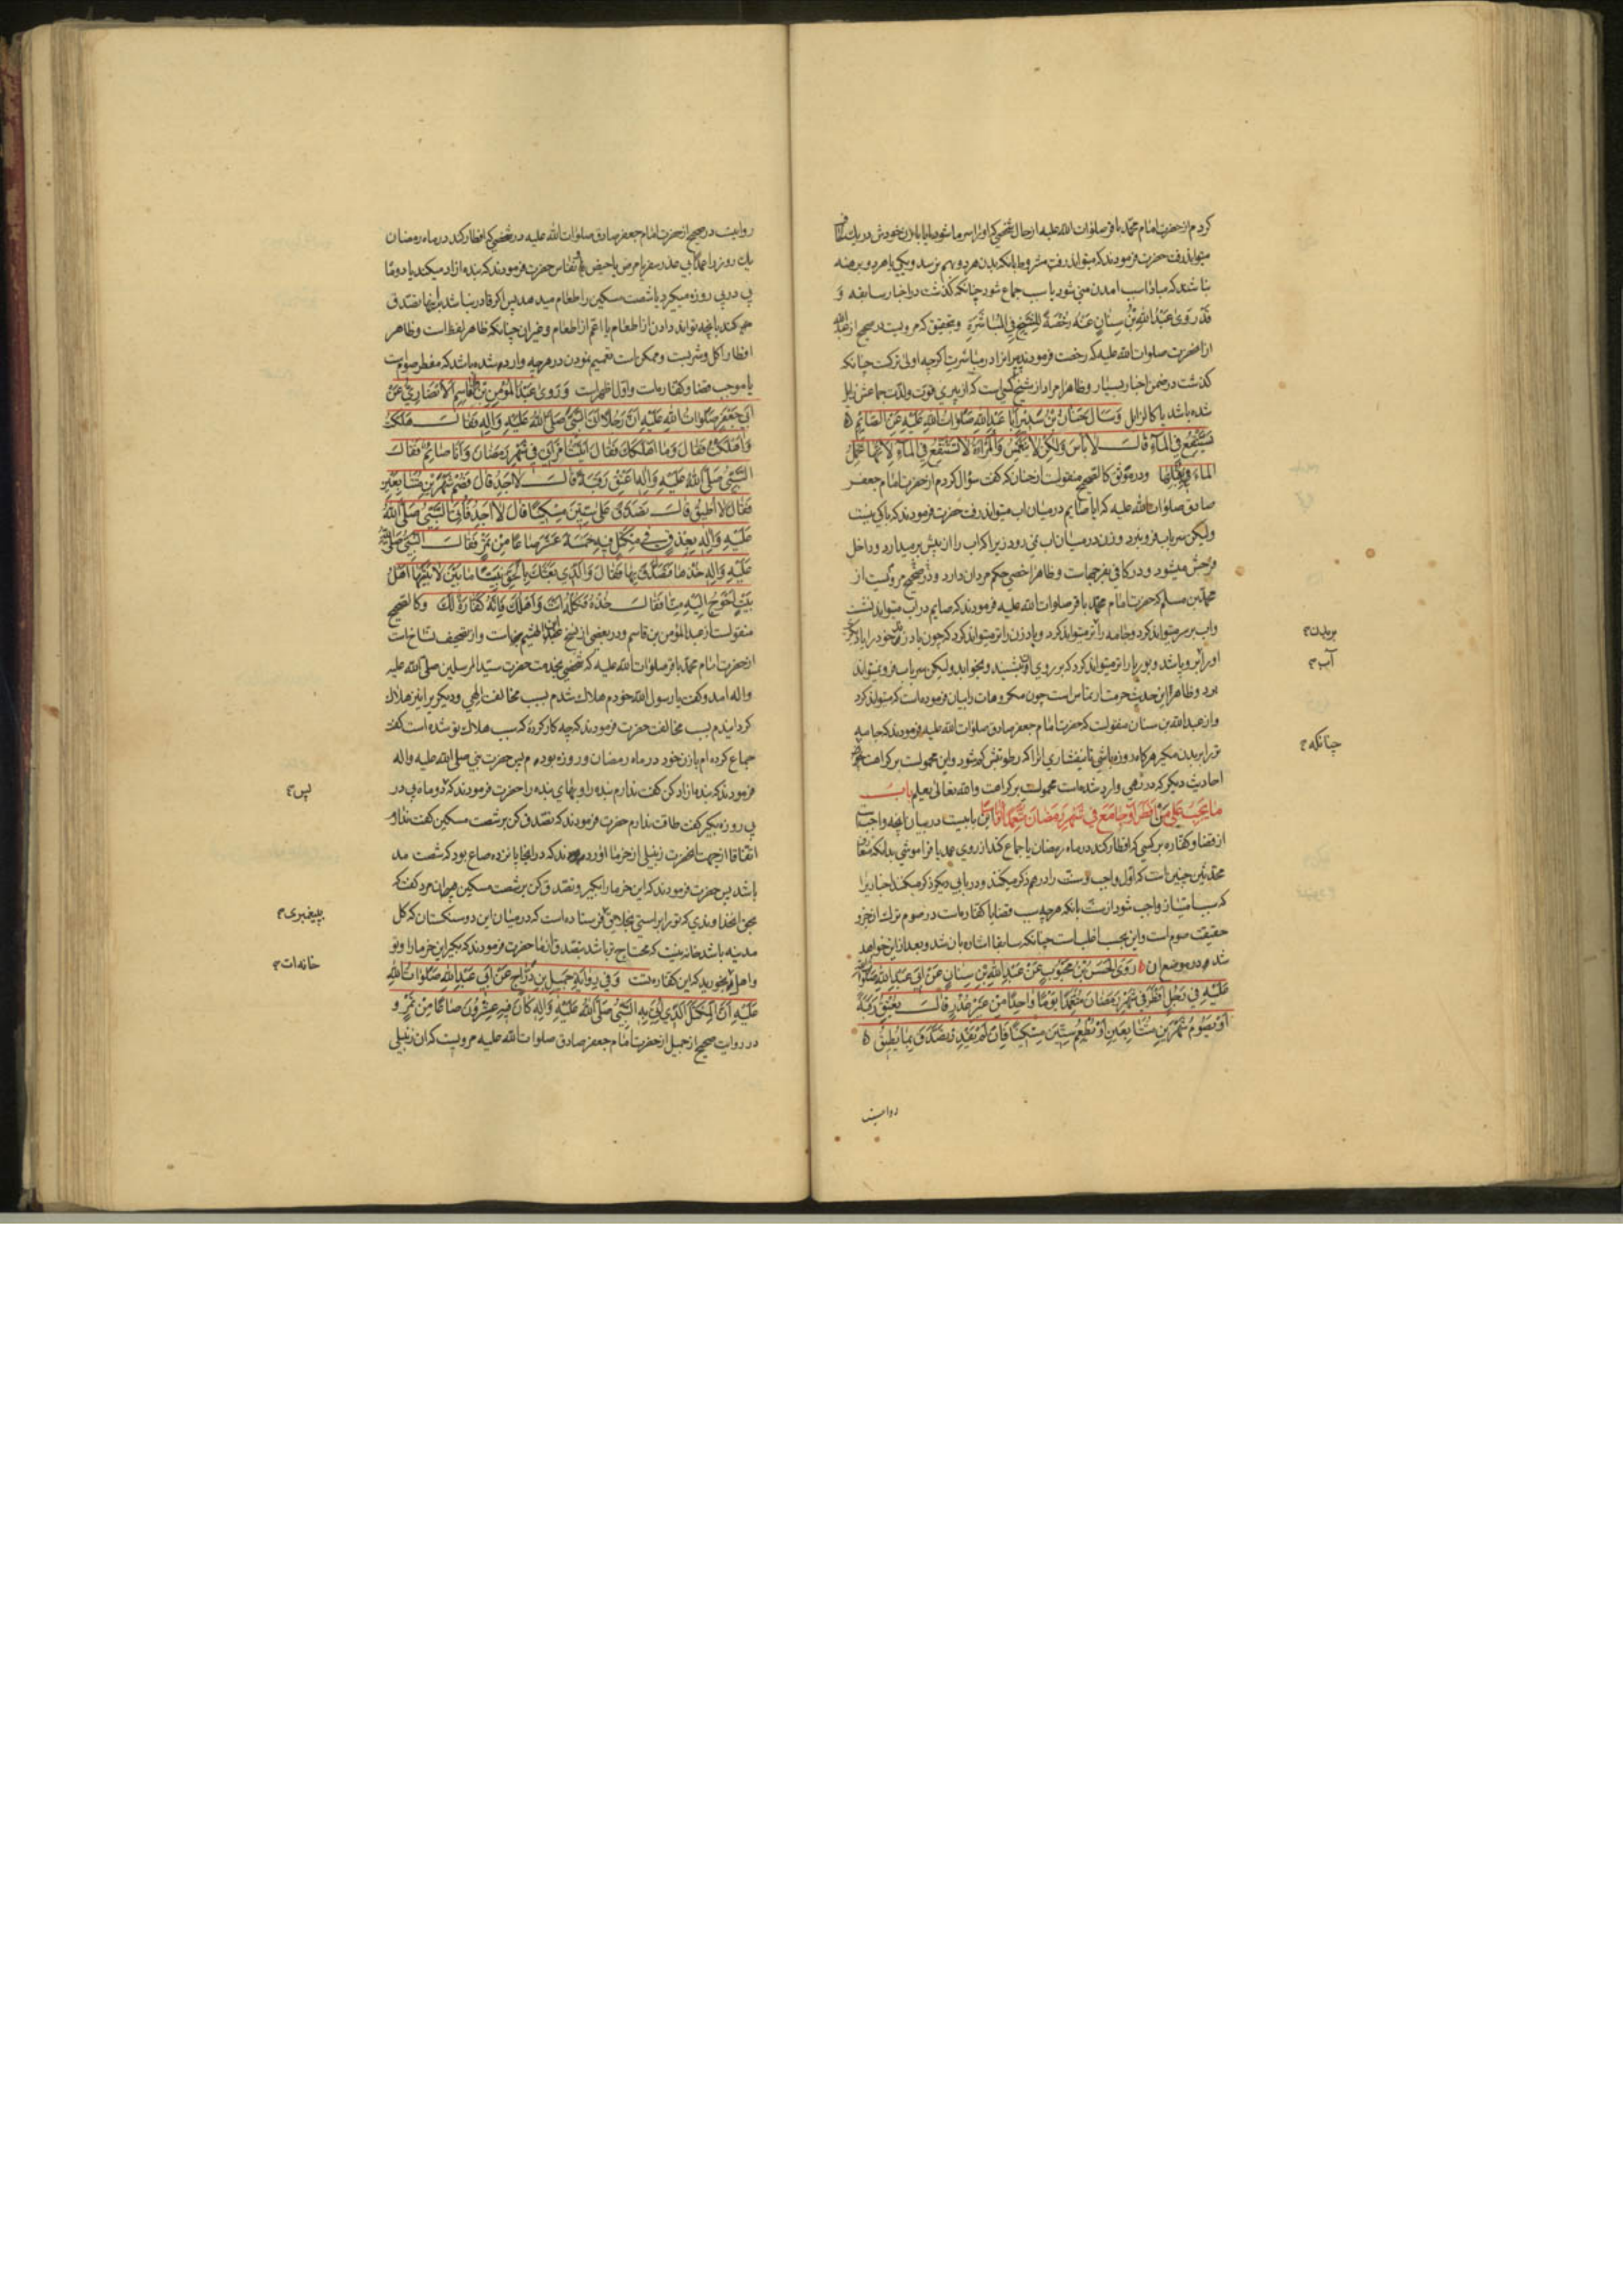 کردم از حضرت امام محمد باقر صلوات الله علیه از حال شخصی که او را سرما شود ایا با زن خودش در یك لحاف
میتواند رفت حضرت فرمودند که میتواند رفت مشروط بانکه بدن هر دو بهم نرسد و یکی یا هر دو برهنه
نباشند که مبادا سبب امدن منی شود یا سبب جماع شود چنانکه گذشت در اخبار سابقه و
قَدْ رَوی عَبْدُ اللهِ بْنُ سِنانٍ عَنْهُ رُخْصَةً لِلشَّیْخِ فِی الْمُباشَرَةِ و بتحقیق که مرویست در صحیح از عبد الله
از انحضرت صلوات الله علیه که رخصت فرمودند پیر را در مباشرت اکرچه اولی ترکست چنانکه
کذشت در ضمن اخبار بسیار و ظاهرا مراد از شیخ کسی است که از پیری قوت و لذت جماعش زایل
شده باشد یا کالزایل وَسَأَلَ حَنانُ بْنُ سَدیرٍ اَبا عَبْدِ اللهِ صَلَواتُ اللهِ عَلَیْهِ عَنِ الصّائِمِ
یَسْتَنْقِعُ فِی الْماءِ قالَ لا بَأْسَ وَلکِنْ لا یَنْغَمِسُ وَالْمَرْأَةُ لا تَسْتَنْقِعُ فِی الْماءِ لِاَنَّها تَحْمِلُ
الْماءَ بِقُبُلِها و در موثق کالصحیح منقولست از حنان که گفت سؤال کردم از حضرت امام جعفر
صادق صلوات الله علیه که ایا صایم در میان اب میتواند رفت حضرت فرمودند که باکی نیست
ولیکن سر باب فرو نبرد و زن در میان اب نمی رود زیرا که اب را از پیش بر میدارد و داخل
فرجش میشود و در کافی بفرجهاست و ظاهرا خصی حکم مردان دارد و در صحیح مرویست از
محمد بن مسلم که حضرت امام محمد باقر صلوات الله علیه فرمودند که صایم در اب میتواند نشست
واب بر سر میتواند کرد و جامه را تر میتواند کرد و بادزن را تر میتواند کرد که چون باد زند خود را باد
او را تر و باشد و بوریا را تر میتواند کرد که بر روی او نشیند و بخوابد ولیکن سر باب فرو نمیتواند
برد و ظاهرا این حدیث حرمت ارتماس است چون مکروهات را بیان فرموده است که میتواند کرد
و از عبد الله بن سنان منقولست که حضرت امام جعفر صادق صلوات الله علیه فرمودند که جامه
تر را بر بدن مکیر هر کاه روزه باشی تا نیفشاری انرا که رطوبتش کم شود و این محمولست بر کراهت
احادیث دیکر که در نهی وارد شده است محمولست بر کراهت والله تعالی یعلم باب
ما یَجِبُ عَلی مَنْ اَفْطَرَ اَوْ جامَعَ فی شَهْرِ رَمَضانَ مُتَعَمِّدًا اَوْ ناسِیًا این بابیست در بیان انچه واجبست
از قضا و کفاره بر کسی که افطار کند در ماه رمضان یا جماع کند از روی عمد یا فراموشی بدانکه متعارف
محدثین چنین است که اول واجب و سنت را در هم ذکر میکنند و در بابی دیکر ذکر میکنند اخباریرا
که سبب امتیاز واجب شود از سنت بانکه هرچه سبب قضا یا کفاره است در صوم ترك ان جزو
حقیقت صوم است و این بحسب اغلب است چنانکه سابقا اشاره بان شد و بعد از این خواهد
شد در موضع ان رَوَی الْحَسَنُ بْنُ مَحْبُوبٍ عَنْ عَبْدِ اللهِ بْنِ سِنانٍ عَنْ اَبی عَبْدِ اللهِ صَلَواتُ الله
عَلَیْهِ فی رَجُلٍ اَفْطَرَ فی شَهْرِ رَمَضانَ مُتَعَمِّدًا یَوْمًا واحِدًا مِنْ غَیْرِ عُذْرٍ قالَ یُعْتِقُ رَقَبَةً
اَوْ یَصُومُ شَهْرَیْنِ مُتَتابِعَیْنِ اَوْ یُطْعِمُ سِتّینَ مِسْکینًا فَاِنْ لَمْ یَقْدِرْ تَصَدَّقَ بِما یُطیقُ
بر بدن
آب
چنانکه
روایت
روایت در صحیح از حضرت امام جعفر صادق صلوات الله علیه در شخصی که افطار کند در ماه رمضان
یك روز را عمدا بی عذر سفر یا مرض یا حیض یا نفاس حضرت فرمودند که بنده ازاد میکند یا دو ماه
پی در پی روزه میکیرد یا شصت مسکین را طعام میدهد پس اکر قادر نباشد بر اینها تصدق
می کند بانچه تواند دادن از اطعام یا اعم از اطعام و غیر ان چنانکه ظاهر لفظ است و ظاهر
افطار اکل و شربست و ممکن است تعمیم نمودن در هرچه وارد شده باشد که مفطر صوم است
یا موجب قضا و کفاره است و اول اظهر است وَرَوی عَبْدُ الْمُؤْمِنِ بْنُ الْقاسِمِ الْاَنْصارِیُّ عَنْ
اَبی جَعْفَرٍ صَلَواتُ اللهِ عَلَیْهِ اَنَّ رَجُلًا اَتَی النَّبِیَّ صَلَّی اللهُ عَلَیْهِ وَالِهِ فَقالَ هَلَکْتُ
وَاَهْلَکْتُ فَقالَ وَما اَهْلَکَكَ فَقالَ اَتَیْتُ امْرَأَتی فی شَهْرِ رَمَضانَ وَاَنَا صائِمٌ فَقالَ
النَّبِیُّ صَلَّی اللهُ عَلَیْهِ وَالِهِ اَعْتِقْ رَقَبَةً قالَ لا اَجِدُ قالَ فَصُمْ شَهْرَیْنِ مُتَتابِعَیْنِ
فَقالَ لا اُطیقُ قالَ تَصَدَّقْ عَلی سِتّینَ مِسْکینًا قالَ لا اَجِدُ فَاُتِیَ النَّبِیُّ صَلَّی اللهُ
عَلَیْهِ وَالِهِ بِعِذْقٍ فی مِکْتَلٍ فیهِ خَمْسَةَ عَشَرَ صاعًا مِنْ تَمْرٍ فَقالَ النَّبِیُّ صَلَّی الله
عَلَیْهِ وَالِهِ خُذْها فَتَصَدَّقْ بِها فَقالَ وَالَّذی بَعَثَكَ بِالْحَقِّ نَبِیًّا ما بَیْنَ لابَتَیْها اَهْلُ
بَیْتٍ اَحْوَجُ اِلَیْهِ مِنّا فَقالَ خُذْهُ فَکُلْهُ اَنْتَ وَاَهْلُكَ فَاِنَّهُ کَفّارَةٌ لَكَ و کالصحیح
منقولست از عبد المؤمن بن قاسم و در بعضی از نسخ عبد المؤمن بن الهیثم و از تصحیف نساخ است
از حضرت امام محمد باقر صلوات الله علیه که شخصی بخدمت حضرت سید المرسلین صلی الله علیه
واله امد و گفت یا رسول الله خودم هلاك شدم بسبب مخالفت الهی و دیکریرا نیز هلاك
کردانیدم بسبب مخالفت حضرت فرمودند که چه کار کردهٔ که سبب هلاك تو شده است گفت
جماع کرده ام با زن خود در ماه رمضان و روزه بودم پس حضرت نبی صلی الله علیه واله
فرمودند که بنده ازاد کن گفت ندارم بنده را و بهای بنده را حضرت فرمودند که دو ماه پی در
پی روزه بکیر گفت طاقت ندارم حضرت فرمودند که تصدق کن بر شصت مسکین گفت ندارم
اتفاقا از جهت انحضرت زنبیلی از خرما اوردند که در انجا پانزده صاع بود که شصت مد
باشد پس حضرت فرمودند که این خرما را بکیر و تصدق کن بر شصت مسکین ان مرد گفت که
بحق انخداوندی که ترا براستی بخلایق فرستاده است که در میان این دو سنکستان که کل
مدینه باشد خانه نیست که محتاج تر باشد بتصدق از ما حضرت فرمودند که بکیر این خرما را و تو
واهل بخورید که این کفاره تست وَفی رِوایَةِ جَمیلِ بْنِ دَرّاجٍ عَنْ اَبی عَبْدِ اللهِ صَلَواتُ اللهِ
عَلَیْهِ اَنَّ الْمِکْتَلَ الَّذی اُتِیَ بِهِ النَّبِیُّ صَلَّی اللهُ عَلَیْهِ وَالِهِ کانَ فیهِ عِشْرُونَ صاعًا مِنْ تَمْرٍ و
در روایت صحیح از جمیل از حضرت امام جعفر صادق صلوات الله علیه مرویست که ان زنبیلی
پس
بپیغمبری
خانه ات